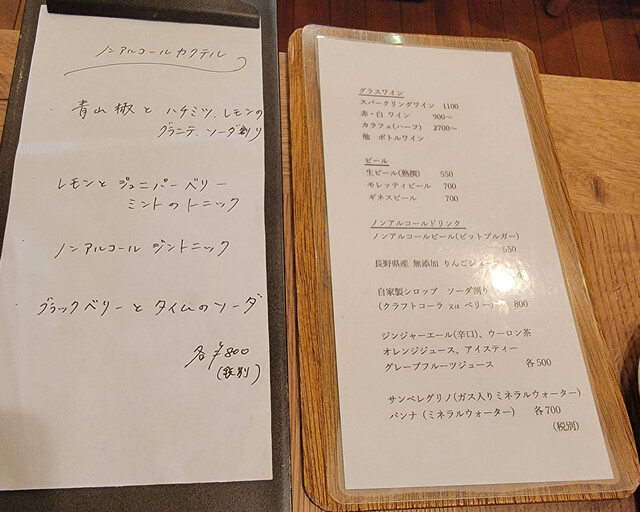 ノンアルコールカクテル
青山椒と ハチミツ、レモンの
グラニテ、ソーダ割り
レモンと ジュニパーベリー
ミントのトニック
ノンアルコール ジントニック
ブラックベリーと タイムのソーダ
各¥800
(税別)
グラスワイン
スパークリングワイン 1100
赤・白 ワイン 900~
カラフェ(ハーフ) 2700~
他 ボトルワイン
ビール
生ビール(熟撰) 550
モレッティビール 700
ギネスビール 700
ノンアルコールドリンク
ノンアルコールビール(ビットブルガー)
550
長野県産 無添加 りんごジュ
自家製シロップ ソーダ割り
(クラフトコーラ 又は ベリー) 800
ジンジャーエール(辛口)、ウーロン茶
オレンジジュース、アイスティー
グレープフルーツジュース 各500
サンペレグリノ(ガス入りミネラルウォーター)
パンナ (ミネラルウォーター) 各700
(税別)